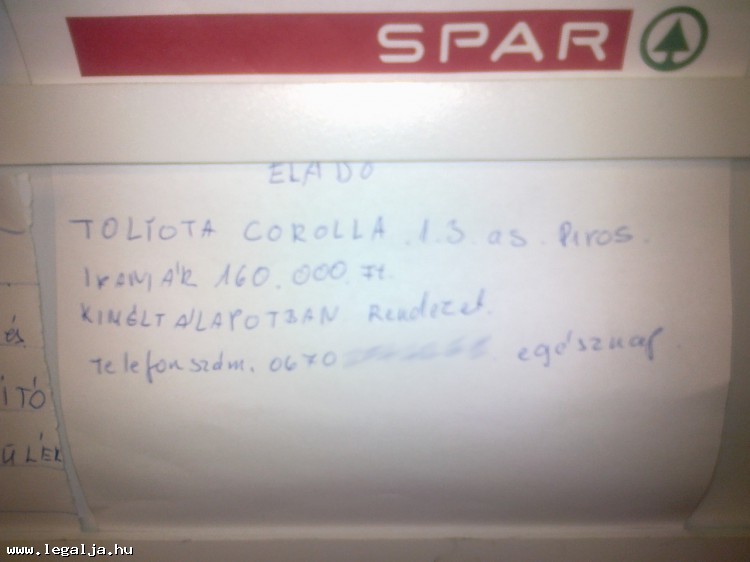 SPAR
ELADÓ
TOLIOTA COROLLA .1.3. as. Piros.
IRANIÁR 160.000 Ft.
KIMÉLT ÁLAPOTBAN Rendezet.
Telefonszám. 0670 egésznap.
és
ITÓ
ŰLÉK
www.legalja.hu